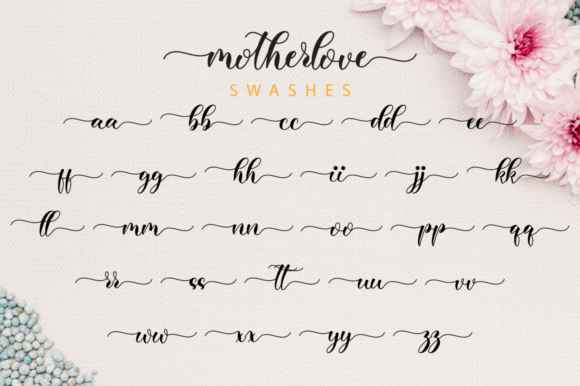 motherlove
SWASHES
aa bb cc dd ee
ff gg hh ii jj kk
ll mm nn oo pp qq
rr ss tt uu vv
ww xx yy zz